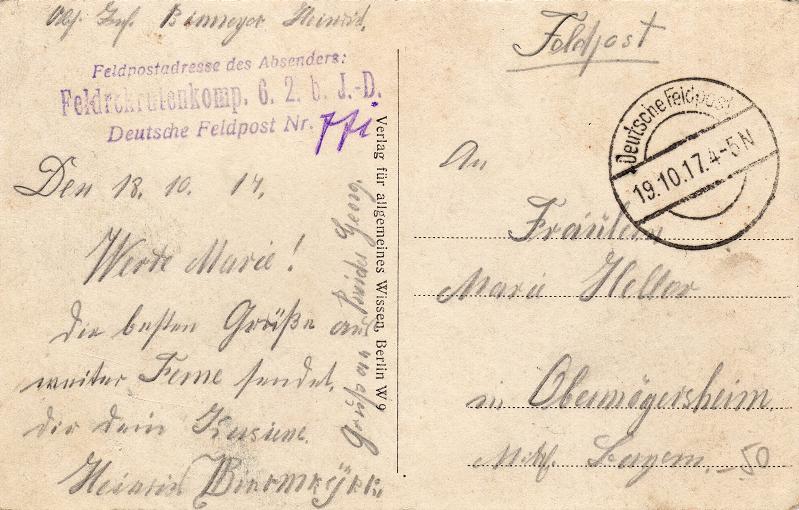 Abs. Inf. Heinrich
Feldpostadresse des Absenders:
Feldrekrutenkomp. 6. 2. b. J.-D.
Deutsche Feldpost Nr.
Den 18. 10. 17.
Werte Marie!
Die besten Grüße aus
weiter Ferne sendet
dir dein
Heinrich
Gruß an Georg.
Verlag für allgemeines Wissen, Berlin W 9
Feldpost
Deutsche Feldpost
19.10.17. 4-5 N
An
Fräulein
Marie Heller
in Obermögersheim
Bayern
50